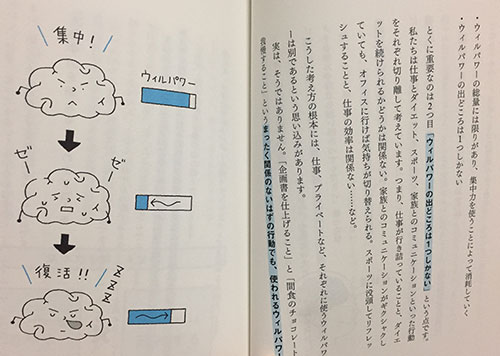 ・ウィルパワーの総量には限りがあり、集中力を使うことによって消耗していく
・ウィルパワーの出どころは1つしかない
とくに重要なのは2つ目「ウィルパワーの出どころは1つしかない」という点です。
私たちは仕事とダイエット、スポーツ、家族とのコミュニケーションといった行動
をそれぞれ切り離して考えています。つまり、仕事が行き詰っていることと、ダイエ
ットを続けられるかどうかは関係ない。家族とのコミュニケーションがギクシャクし
ていても、オフィスに行けば気持ちが切り替えられる。スポーツに没頭してリフレッ
シュすることと、仕事の効率は関係ない……など。
こうした考え方の根本には、仕事、プライベートなど、それぞれに使うウィルパワ
ーは別であるという思い込みがあります。
実は、そうではありません。「企画書を仕上げること」と「間食のチョコレート
我慢すること」というまったく関係のないはずの行動でも、使われるウィルパワ
集中!
ウィルパワー
ゼェ
ゼェ
復活!!
ZZZZ